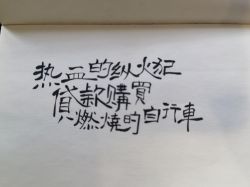 热血的纵火犯
貸款購買
燃燒的自行車